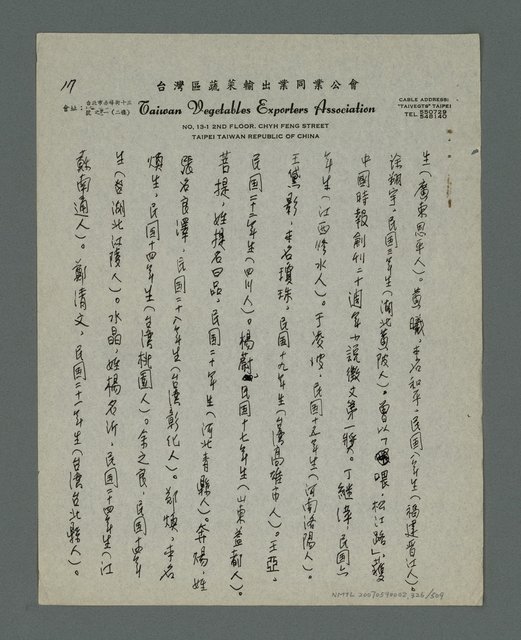 17
台灣區蔬菜輸出業同業公會
會址：台北市赤峰街十三號之一（二樓）
Taiwan Vegetables Exporters Association
CABLE ADDRESS:
"TAIVEGTS" TAIPEI
TEL. 550729
548140
NO. 13-1 2ND FLOOR, CHYH FENG STREET
TAIPEI TAIWAN REPUBLIC OF CHINA
生（廣東恩平人）。黃曦，本名和平，民國八年生（福建晋江人）。
徐翔宇，民國三年生（湖北黃陂人）。曾以「喂，松江路」獲
中國時報創刊二十週年小說徵文第一獎。丁繼澤，民國
年生（江西修水人）。于凌波，民國十五年生（河南洛陽人）。
王黛影，本名瓊珠，民國十九年生（台灣高雄市人）。王亞，
民國二十三年生（四川人）。楊蔚，民國十七年生（山東益都人）。
菩提，姓提名曰品，民國二十年生（河北青縣人）。奔陽，姓
張名良澤，民國二十八年生（台灣彰化人）。鄭煥，本名
煥生，民國十四年生（台灣桃園人）。余之良，民國十四年
生（湖北江陵人）。水晶，姓楊名沂，民國二十四年生（江
蘇南通人）。鄭清文，民國二十一年生（台灣台北縣人）。
NMTL 20070590002, 326/509